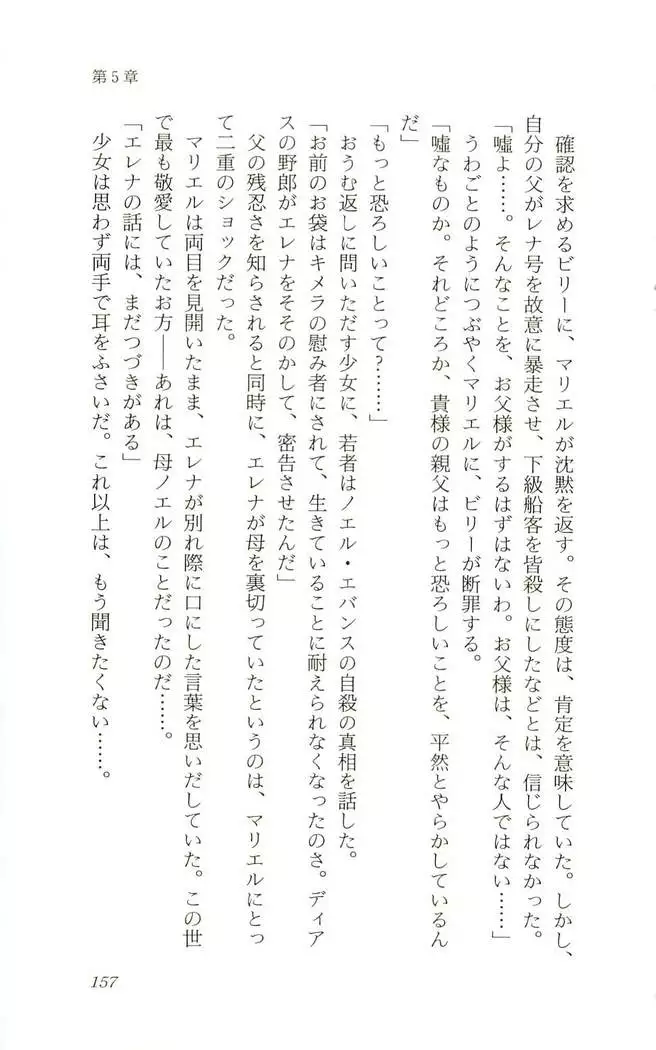 第5章
　確認を求めるビリーに、マリエルが沈黙を返す。その態度は、肯定を意味していた。しかし、
自分の父がレナ号を故意に暴走させ、下級船客を皆殺しにしたなどとは、信じられなかった。
「嘘よ……。そんなことを、お父様がするはずはないわ。お父様は、そんな人ではない……」
　うわごとのようにつぶやくマリエルに、ビリーが断罪する。
「嘘なものか。それどころか、貴様の親父はもっと恐ろしいことを、平然とやらかしているん
だ」
「もっと恐ろしいことって?……」
　おうむ返しに問いただす少女に、若者はノエル・エバンスの自殺の真相を話した。
「お前のお袋はキメラの慰み者にされて、生きていることに耐えられなくなったのさ。ディア
スの野郎がエレナをそそのかして、密告させたんだ」
　父の残忍さを知らされると同時に、エレナが母を裏切っていたというのは、マリエルにとっ
て二重のショックだった。
　マリエルは両目を見開いたまま、エレナが別れ際に口にした言葉を思いだしていた。この世
で最も敬愛していたお方――あれは、母ノエルのことだったのだ……。
「エレナの話には、まだつづきがある」
　少女は思わず両手で耳をふさいだ。これ以上は、もう聞きたくない……。
157